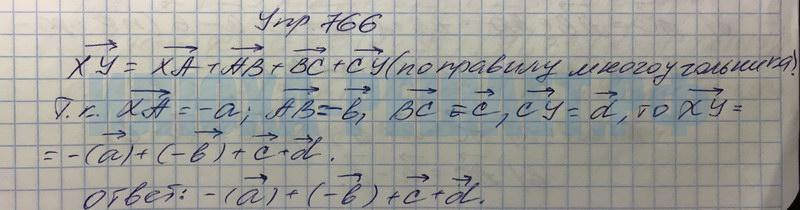 Упр 766
XY = XA + AB + BC + CY (по правилу многоугольника)
Т.к. XA = -a; AB = -b, BC = c, CY = d, то XY =
= -(a) + (-b) + c + d.
ответ: -(a) + (-b) + c + d.